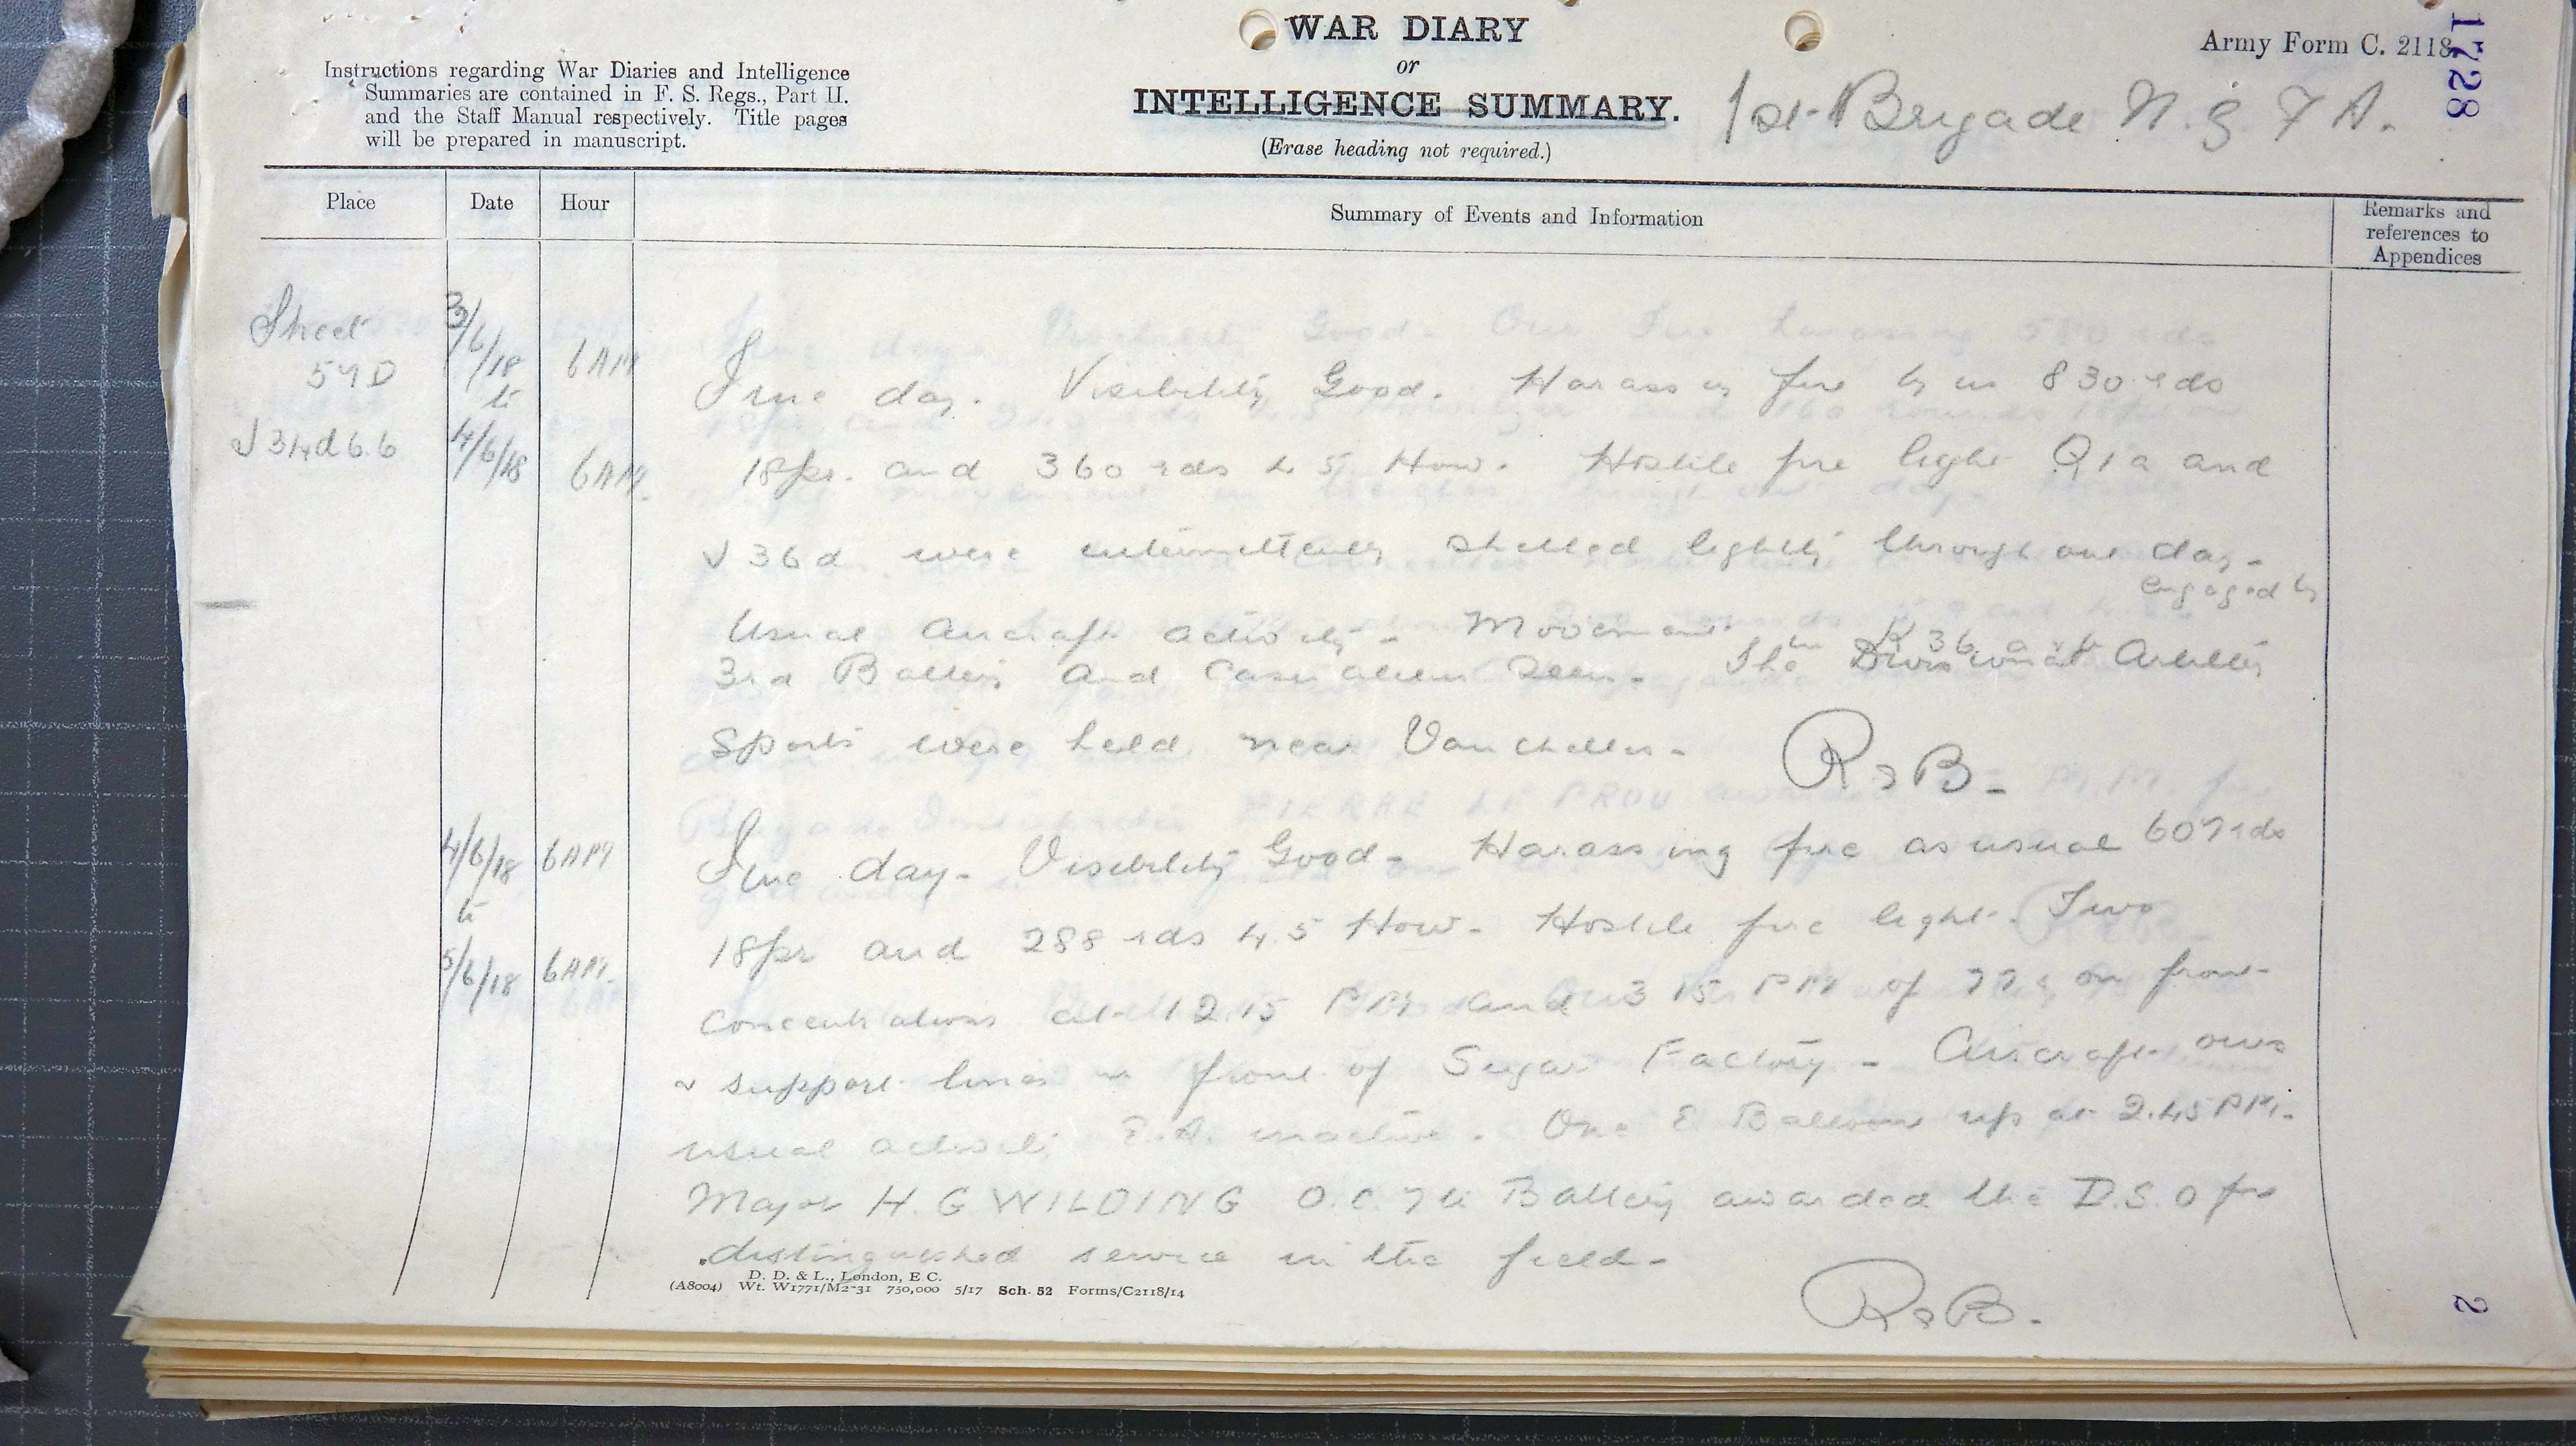 WAR DIARY
or
INTELLIGENCE SUMMARY.
(Erase heading not required.)
Instructions regarding War Diaries and Intelligence
Summaries are contained in F. S. Regs., Part II.
and the Staff Manual respectively. Title pages
will be prepared in manuscript.
Army Form C. 2118.
1728
1st Brigade N.Z.F.A.
Place
Date
Hour
Summary of Events and Information
Remarks and
references to
Appendices
Sheet
57D
J34d6.6
3/6/18
to
4/6/18
6AM
6AM.
Fine day. Visibility Good. Harassing fire by us 830 rds
18pr. and 360 rds 4 5 How. Hostile fire light Q1a and
J36d were intermittently shelled lightly throughout day-
engaged by
Usual aircraft activity - Movement in K36
3rd Battery and casualties seen. The Divisional Artillery
Sports were held near Vauchelles-
RsB-
4/6/18
to
5/6/18
6AM
6AM.
Fine day- Visibility Good- Harassing fire as usual 607 rds
18pr and 288 rds 4.5 How- Hostile fire light. Two
concentrations at 12.15 PM and 3 15 PM of 77s on front
& support lines in front of Sugar Factory - Aircraft ours
usual activity E.A. inactive. One E Balloon up at 2.45 PM.
Major H. G WILDING O.C. 7th Battery awarded the D.S.O for
distinguished service in the field-
RsB.
D. D. & L., London, E C.
(A8004) Wt. W1771/M2-31 750,000 5/17 Sch. 52 Forms/C2118/14
2